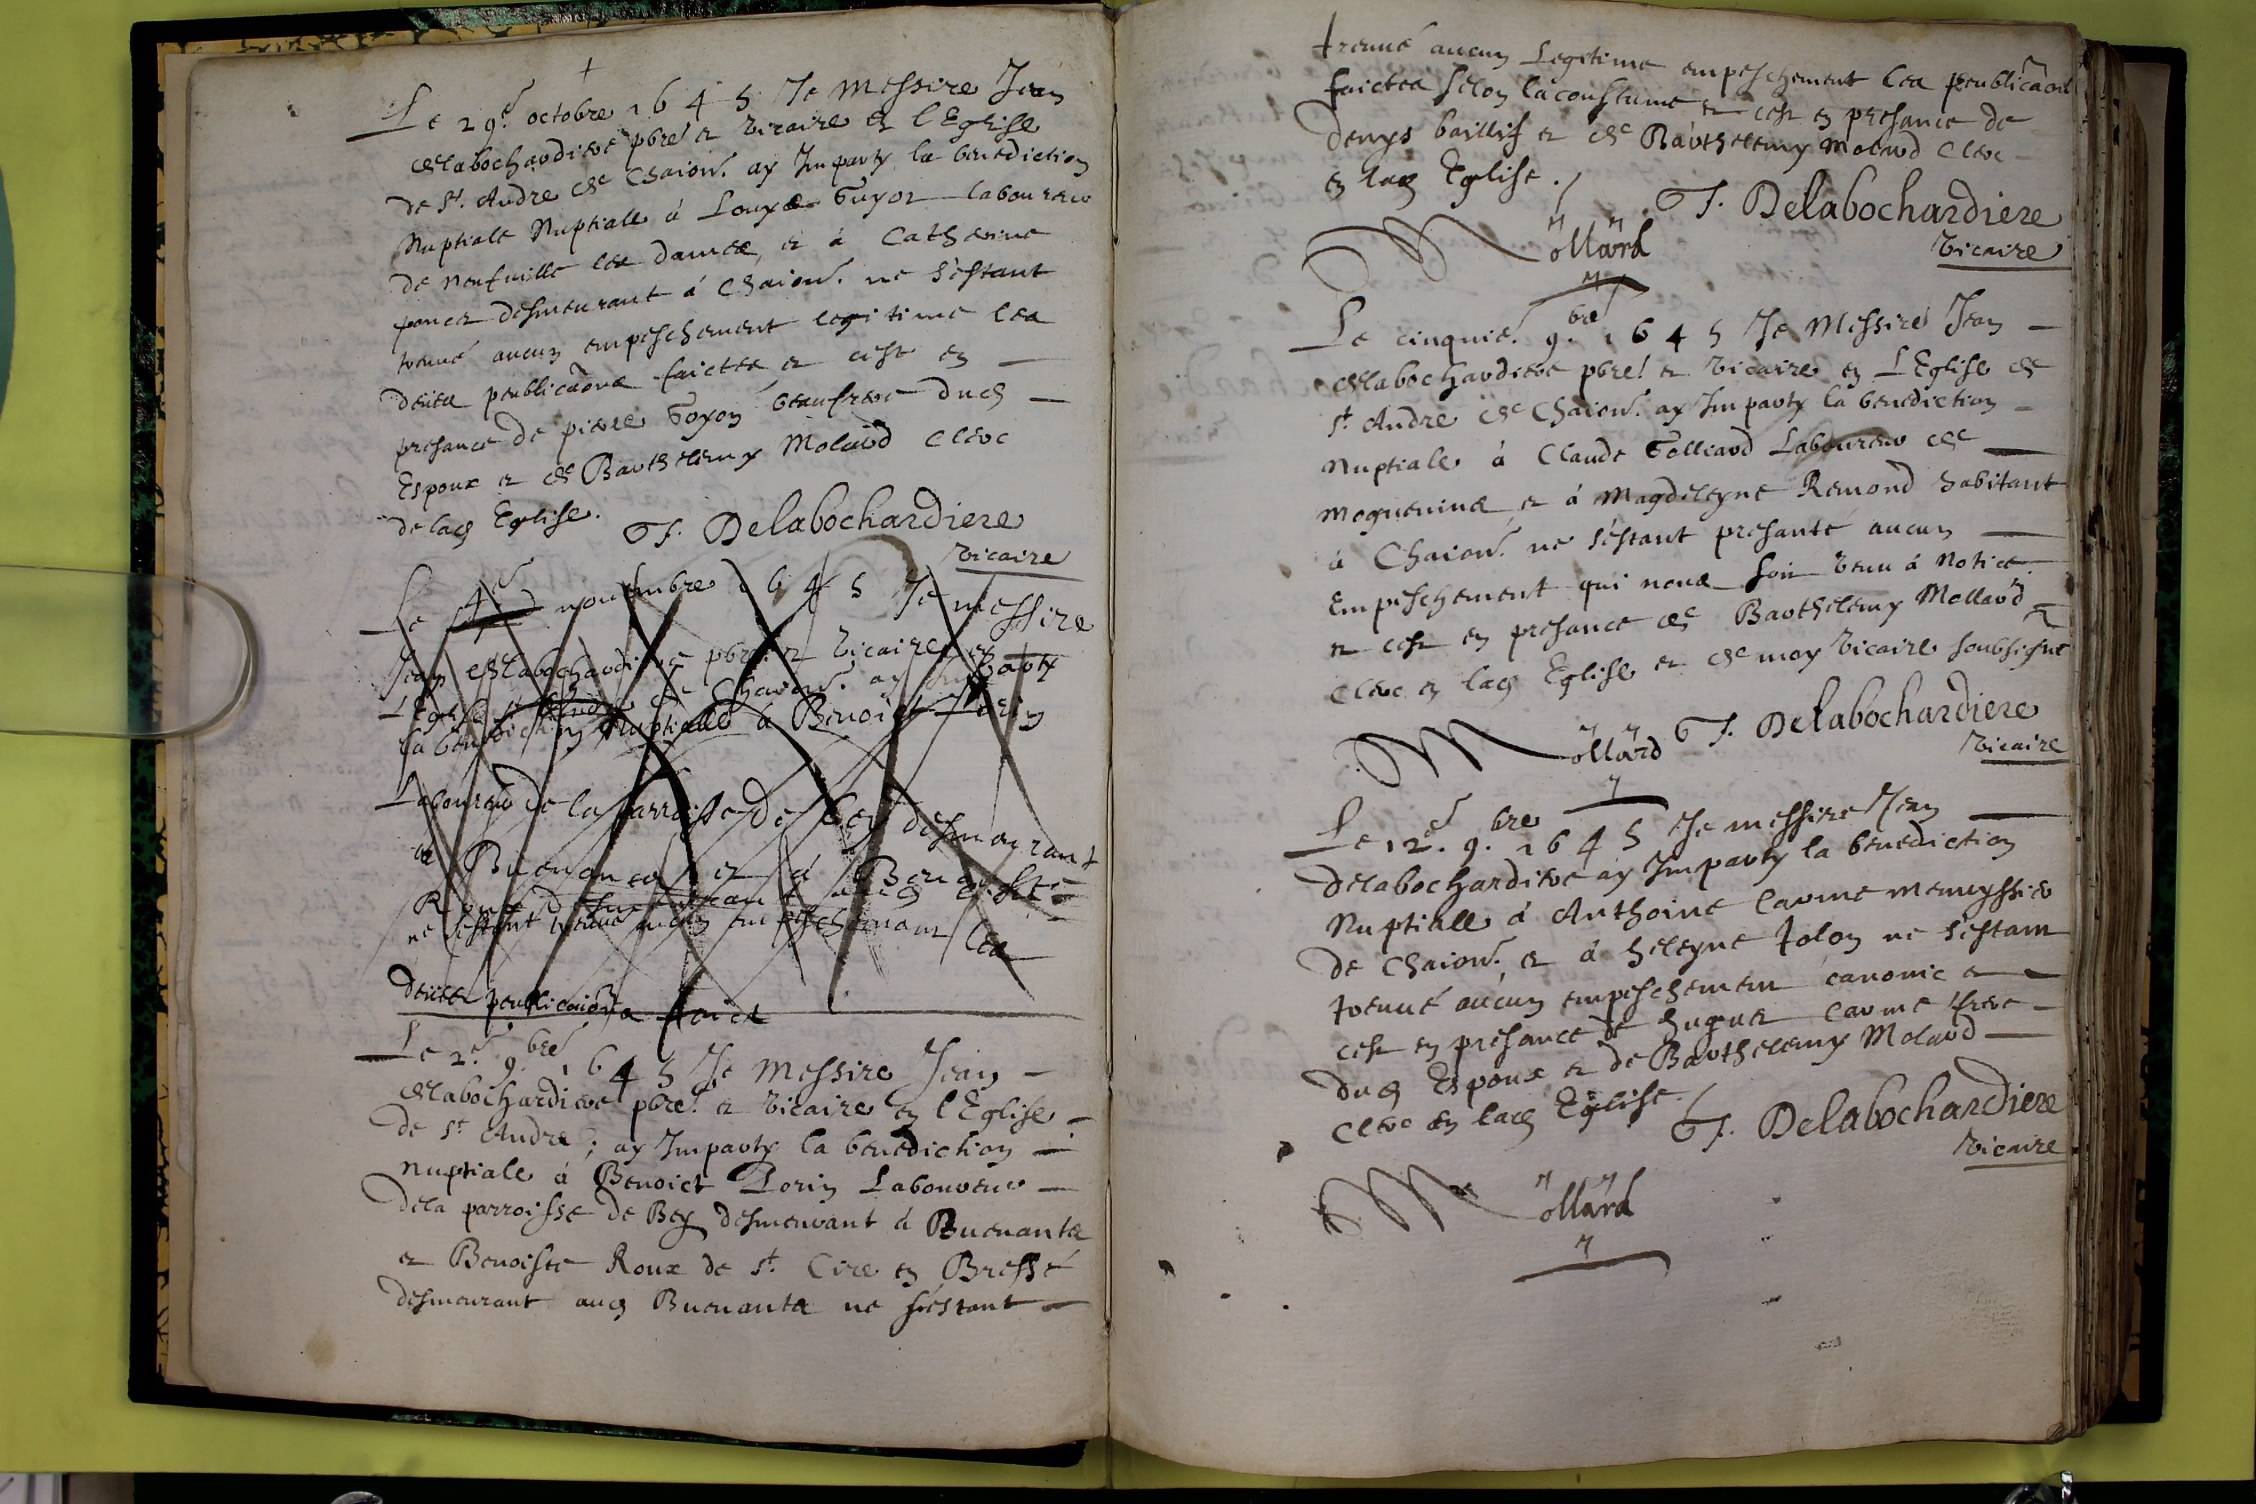 +
Le 29.e octobre 1645 Je Messire Jean
delabochardiere pbre et vicaire en l'Eglise
de St. Andre de Chaiou. ay Imparty la benediction
Nuptiale Nuptiale à Louys Guyot laboureur
de Neufville les dames, et à Catherine
poncet desmeurant à Chaiou. ne s'estant
treuué aucun empeschement legitime les
deues peublicaons faictes et c'est en
presance de pierre Goyon beaufrere dud
Espoux et de Barthelemy Molard clerc
de lad Eglise.
J. Delabochardiere
vicaire
Le 4e nouembre 1645 Je messire
Jean delabochardiere pbre. et vicaire en
L'Eglise St Andre de Chaiou. ay Imparty
la benediction Nuptialle à Benoict Lorin
Laboureur de la parroisse de bey desmeurant
a Buenans et à Benoiste
Roux desmeurant aud
ne s'estant treuué aucun empeschemant les
deues peublicaions faict
Le 2.e 9.bre 1645 Je Messire Jean
delabochardiere pbre. et vicaire en l'Eglise
de St Andre; ay Imparty la benediction
nuptiale à Benoict Lorin Laboureur
dela parroisse de Bey desmeurant à Buenants
et Benoiste Roux de St. Cire en Bresse
desmeurant aud Buenants ne s'estant
treuué aucun Legitime empeschement les peublicaons
faictes selon la coustume et c'est en presance de
denys baillif et de Barthelemy Molard Clerc
en lad Eglise.
J. Delabochardiere
vicaire
Mollard
Le cinquie. 9.bre 1645 Je Messire Jean
delabochardiere pbre. et vicaire en L'Eglise de
St. Andre de Chaiou. ay Imparty la benediction
Nuptiale à Claude Golliard Laboureur de
Mogueneins et à Magdeleyne Remond habitant
à Chaiou. ne s'estant presanté aucun
Empeschement qui nous soit venu à Notice
et c'est en presance de Barthelemy Mollard
clerc en lad Eglise et de moy vicaire soubsigné
J. Delabochardiere
vicaire
Mollard
Le 12.e 9.bre 1645 Je messire Jean
Delabochardiere ay Imparty la benediction
Nuptialle à Anthoine Carme
de Chaiou. et à heleyne Jolon ne s'estant
treuué aucun empeschement canonic et
c'est en presance de hugues Carme frere
dud Espoux et de Barthelemy Molard
Clerc en lad Eglise.
J. Delabochardiere
vicaire
Mollard